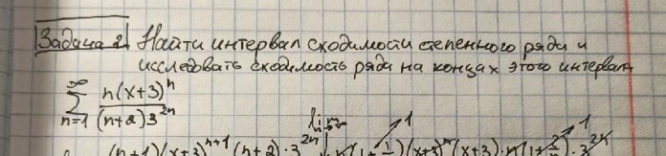 Задача 2 Найти интервал сходимости степенного ряда и
исследовать сходимость ряда на концах этого интервала
∞
∑ n(x+3)^n / (n+2)3^{2n}
n=1
lim 1 1
(n+1)(x+3)^{n+1} (n+2)·3^{2n}